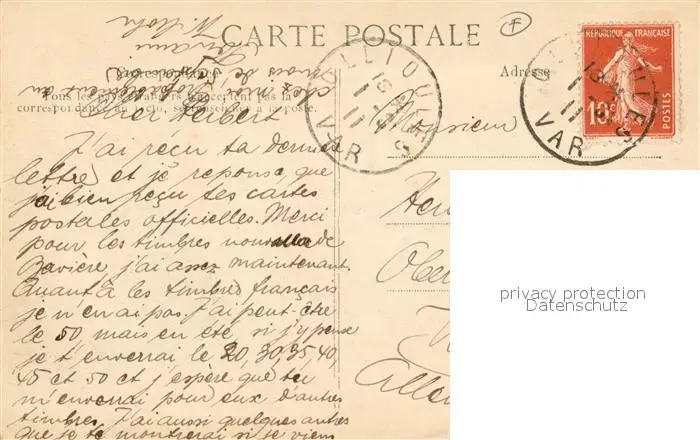 CARTE POSTALE
Correspondance
Adresse
Tous les pays étrangers n'acceptent pas la
correspondance au recto, se renseigner à la poste.
F
RÉPUBLIQUE FRANÇAISE
10c
POSTES
VAR
VAR
chez moi
mois de
Wilhelm
Cher Herbert
J'ai reçu ta dernière
lettre et je réponse que
j'ai bien reçu tes cartes
postales officielles. Merci
pour les timbres nouveaux de
Bavière, j'ai assez maintenant.
Quant à les timbres français
je n'en ai pas. J'ai peut-être
le 50, mais en été, si j'y pense
je t'enverrai le 20, 30, 35, 40,
45 et 50 et j'espère que tu
m'enverrai pour eux d'autres
timbres. J'ai aussi quelques autres
que je te montrerai si je viens
Monsieur
Her
Ober
Allem
privacy protection
Datenschutz